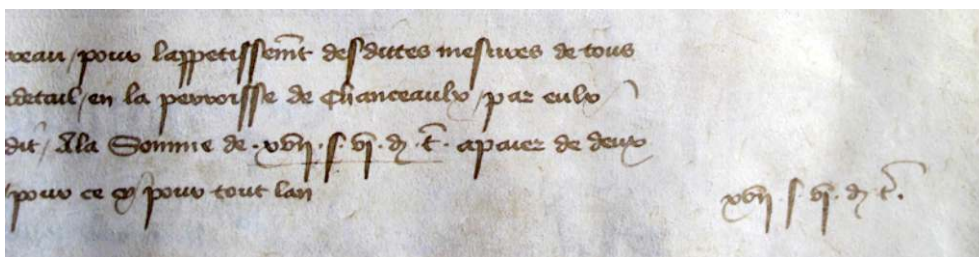 pour lappetissemt desdictes mesures de tous
detail / en la perroisse de Chanceaulx / par eulx
dit / A la Somme de . xvij . s . vj . d . t . apaier de deux
/ pour ce cy pour tout lan
xvij . s . vj . d . t .